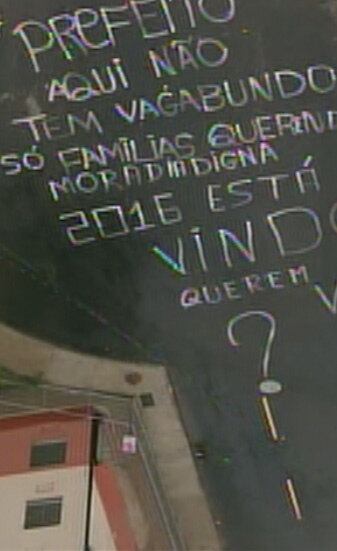 PREFEITO
AQUI NÃO
TEM VAGABUNDO
SÓ FAMÍLIAS QUEREND
MORADIA DIGNA
2016 ESTÁ
VINDO
QUEREM V
?